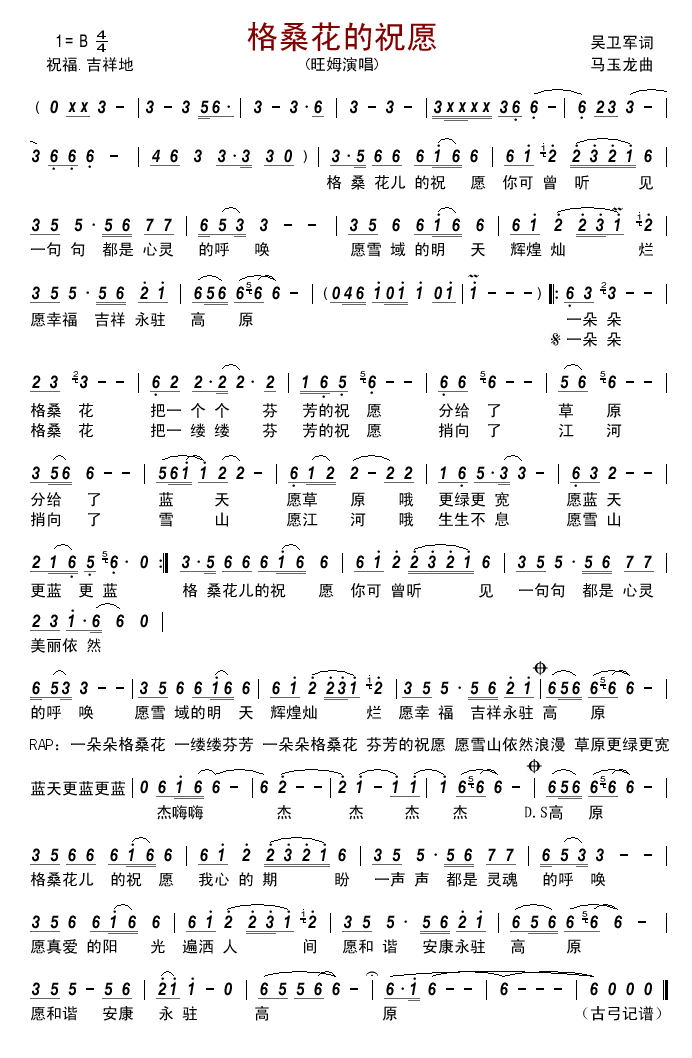 格桑花的祝愿
1=B 4/4
吴卫军词
祝福.吉祥地
(旺姆演唱)
马玉龙曲
( 0 x x 3 - | 3 - 3 5 6 · | 3 - 3 · 6 | 3 - 3 - | 3 x x x x 3 6 6 - | 6 2 3 3 -
3 6 6 6 - | 4 6 3 3 · 3 3 0 ) | 3 · 5 6 6 6 1 6 6 | 6 1 2 2 3 2 1 6
格 桑 花儿 的祝 愿 你可 曾 听 见
3 5 5 · 5 6 7 7 | 6 5 3 3 - - | 3 5 6 6 1 6 6 | 6 1 2 2 3 1 2
一句 句 都是 心灵 的呼 唤 愿雪 域 的明 天 辉煌 灿 烂
3 5 5 · 5 6 2 1 | 6 5 6 6 6 6 - | ( 0 4 6 1 0 1 1 0 1 | 1 - - - ) ‖: 6 3 3 - -
愿幸福 吉祥 永驻 高 原 一朵 朵
𝄋 一朵 朵
2 3 3 - - | 6 2 2 · 2 2 · 2 | 1 6 5 6 - - | 6 6 6 - - | 5 6 6 - -
格桑 花 把一 个 个 芬 芳的祝 愿 分给 了 草 原
格桑 花 把一 缕 缕 芬 芳的祝 愿 捎向 了 江 河
3 5 6 6 - - | 5 6 1 1 2 2 - | 6 1 2 2 - 2 2 | 1 6 5 · 3 3 - | 6 3 2 - -
分给 了 蓝 天 愿草 原 哦 更绿更 宽 愿蓝 天
捎向 了 雪 山 愿江 河 哦 生生不 息 愿雪 山
2 1 6 5 6 · 0 :‖ 3 · 5 6 6 6 1 6 6 | 6 1 2 2 3 2 1 6 | 3 5 5 · 5 6 7 7
更蓝 更 蓝 格 桑花儿的祝 愿 你可 曾听 见 一句句 都是 心灵
2 3 1 · 6 6 0 |
美丽依 然
6 5 3 3 - - | 3 5 6 6 1 6 6 | 6 1 2 2 3 1 2 | 3 5 5 · 5 6 2 1 | 6 5 6 6 6 6 -
的呼 唤 愿雪 域的明 天 辉煌灿 烂 愿幸 福 吉祥永驻 高 原
RAP：一朵朵格桑花 一缕缕芬芳 一朵朵格桑花 芬芳的祝愿 愿雪山依然浪漫 草原更绿更宽
蓝天更蓝更蓝 | 0 6 1 6 6 - | 6 2 - - | 2 1 - 1 1 | 1 6 6 6 - | 6 5 6 6 6 6 -
杰嗨嗨 杰 杰 杰 杰 D.S高 原
3 5 6 6 6 1 6 6 | 6 1 2 2 3 2 1 6 | 3 5 5 · 5 6 7 7 | 6 5 3 3 - -
格桑花儿 的祝 愿 我心 的 期 盼 一声 声 都是 灵魂 的呼 唤
3 5 6 6 1 6 6 | 6 1 2 2 3 1 2 | 3 5 5 · 5 6 2 1 | 6 5 6 6 6 6 -
愿真爱 的阳 光 遍洒 人 间 愿和 谐 安康永驻 高 原
3 5 5 - 5 6 | 2 1 1 - 0 | 6 5 5 6 6 | 6 - - - | 6 · 1 6 - - | 6 - - - | 6 0 0 0 ‖
愿和谐 安康 永 驻 高 原 (古弓记谱)